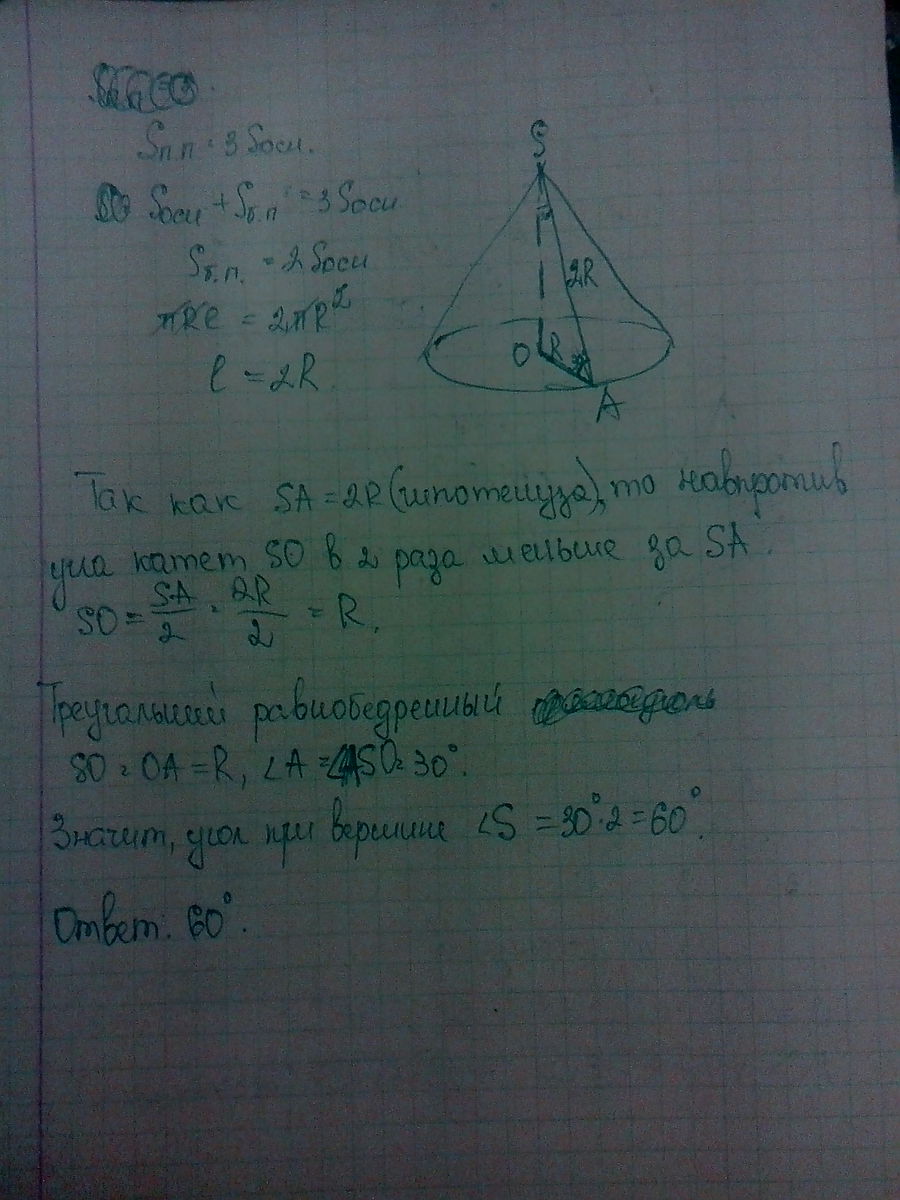 Sп.п = 3 Sосн.
Sосн + Sб.п = 3 Sосн
Sб.п. = 2 Sосн
πRl = 2πR²
l = 2R
S
2R
O R
A
Так как SA = 2R (гипотенуза), то навпротив
угла катет SO в 2 раза меньше за SA.
SO = SA/2 = 2R/2 = R.
Треугольник равнобедренный
SO = OA = R, ∠A = ∠ASO = 30°.
Значит, угол при вершине ∠S = 30°·2 = 60°.
Ответ: 60°.